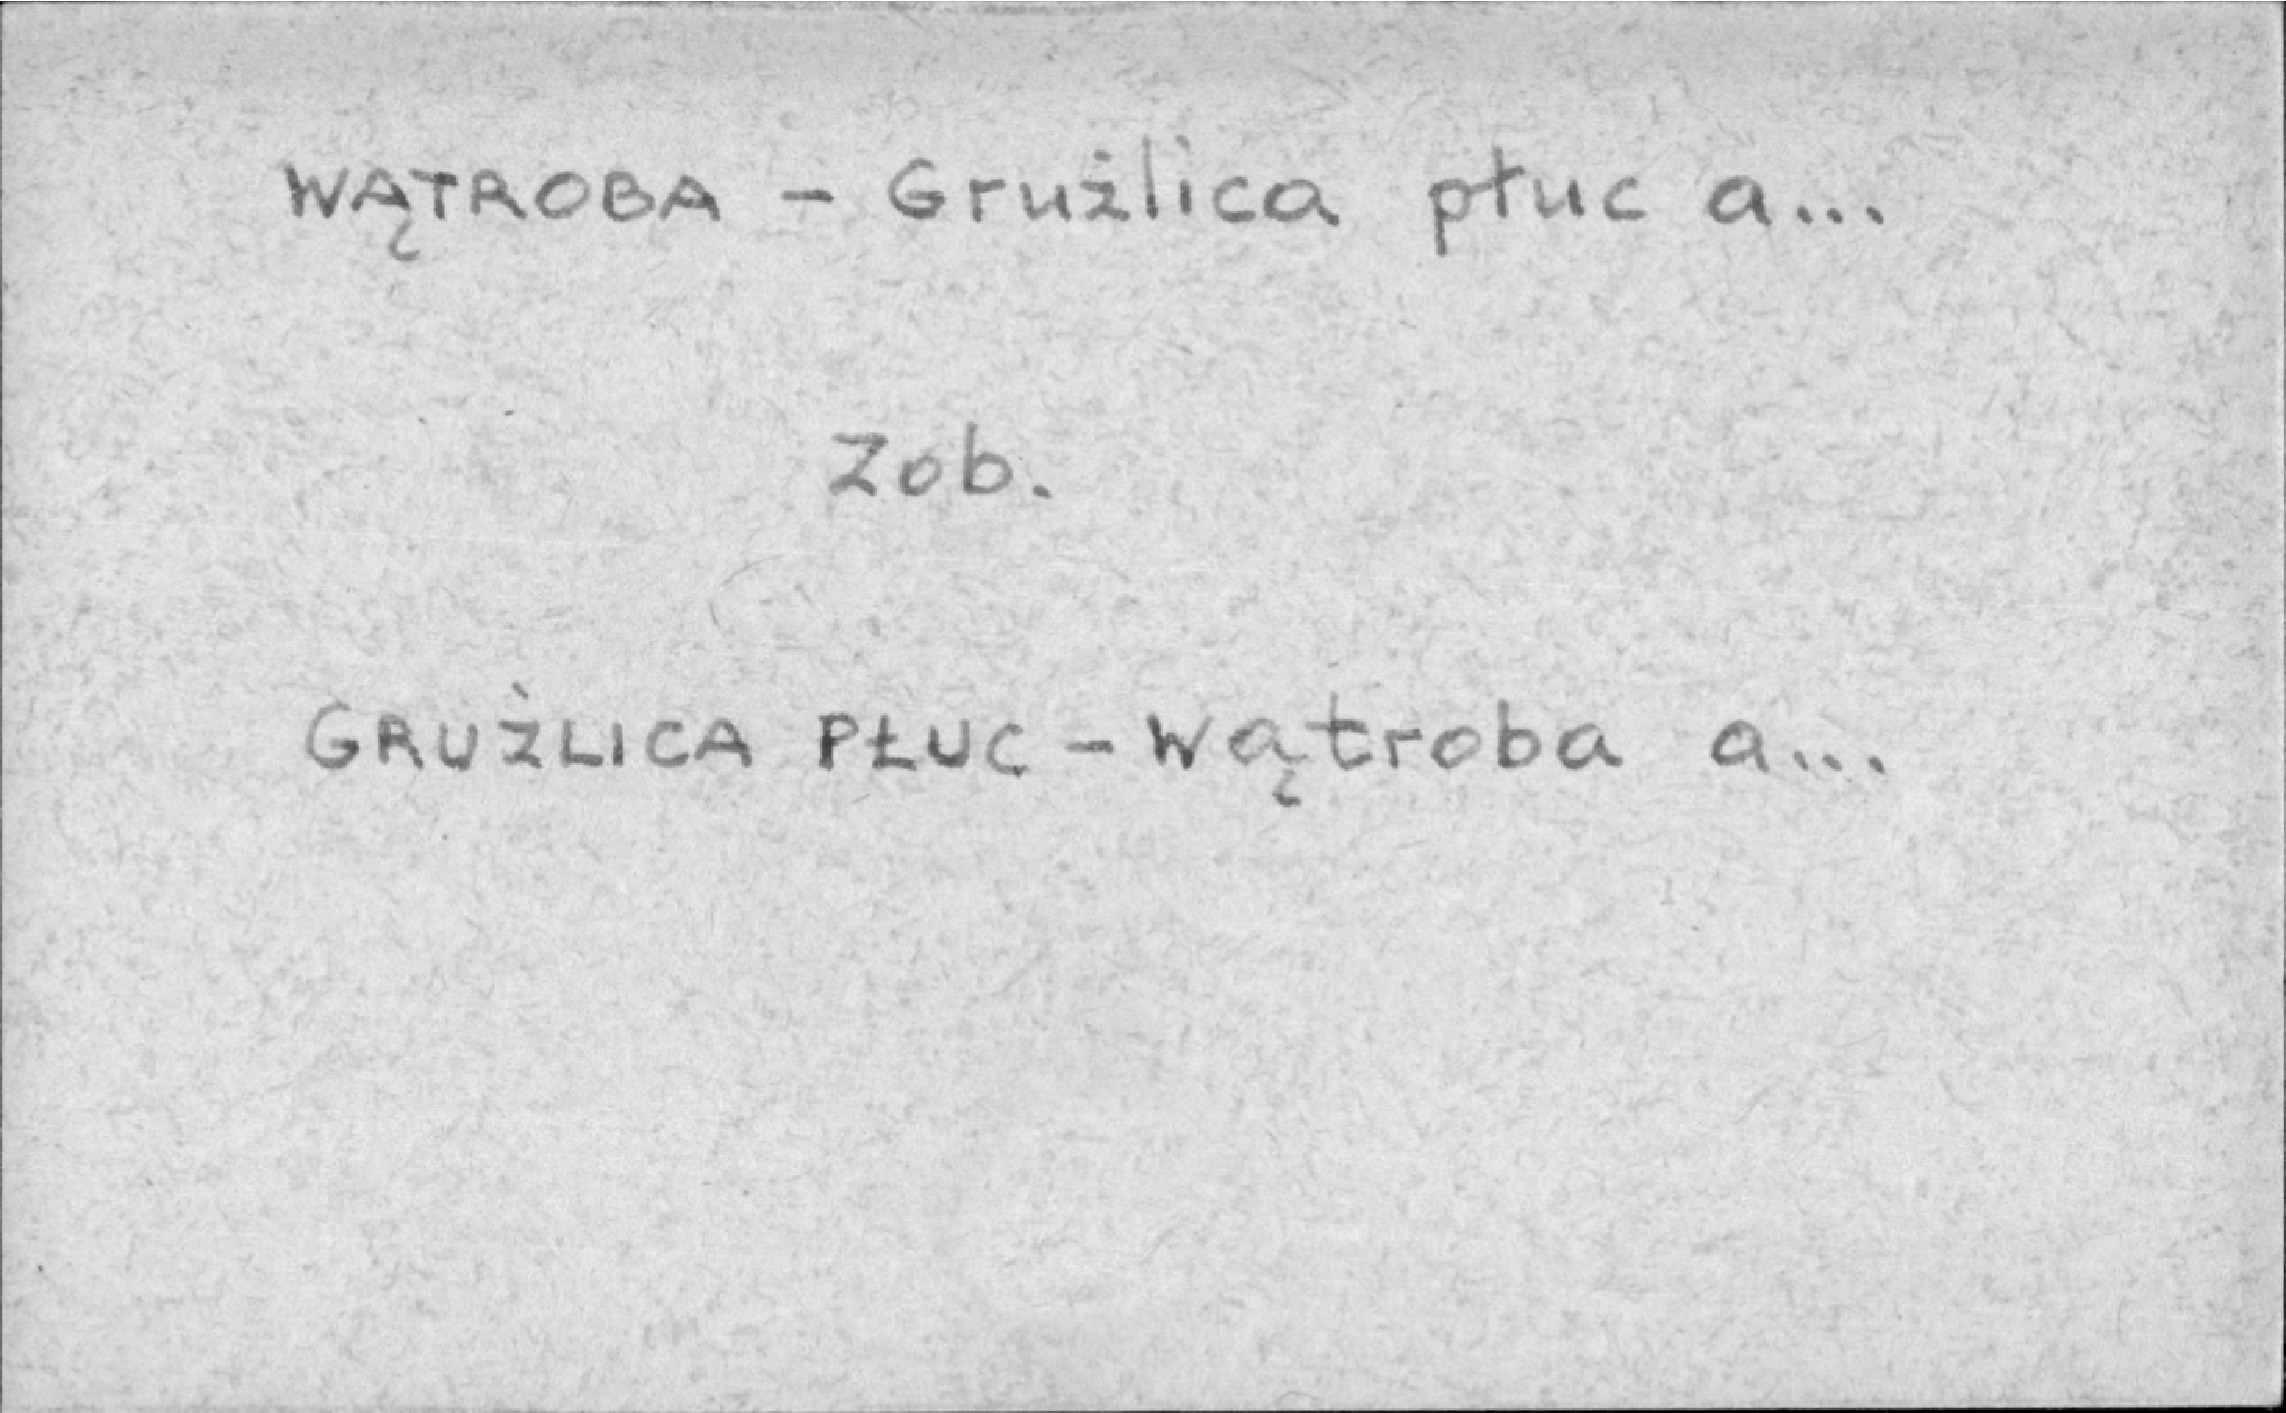 WĄTROBA - Gruźlica płuc a...
Zob.
GRUŹLICA PŁUC - Wątroba a...